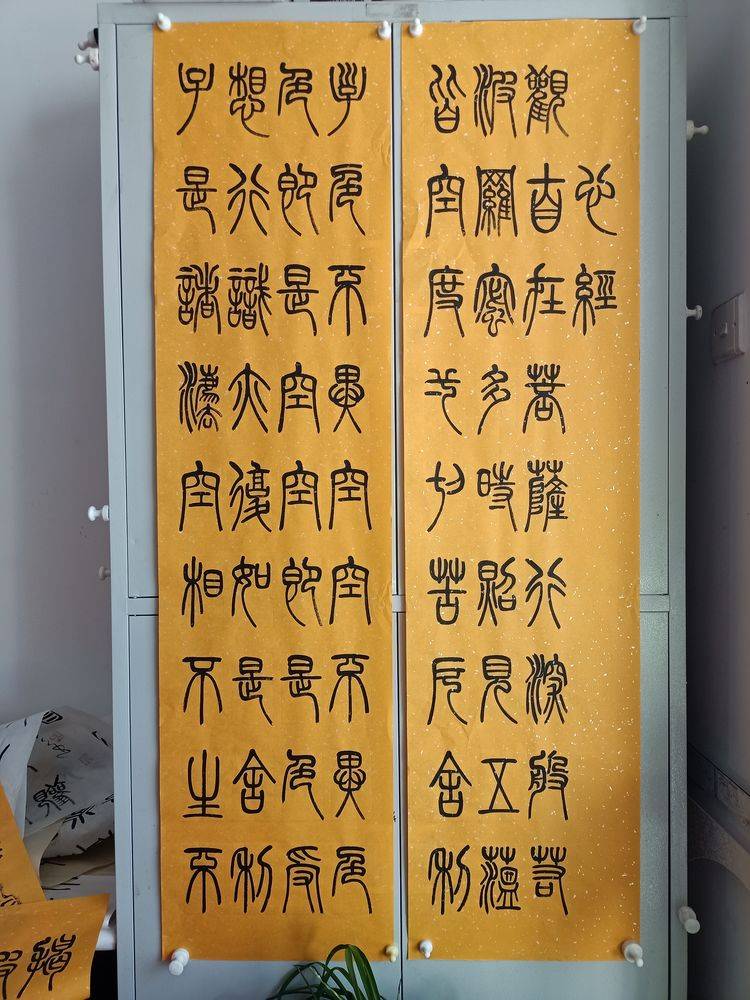 心經
觀自在菩薩行深般若
波羅蜜多時照見五蘊
皆空度弌切苦厄舍利
子色不異空空不異色
色即是空空即是色受
想行識亦復如是舍利
子是諸法空相不生不
揭